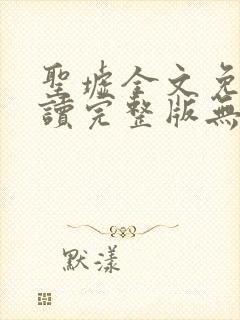 聖墟全文免
讀完整版無
默漾